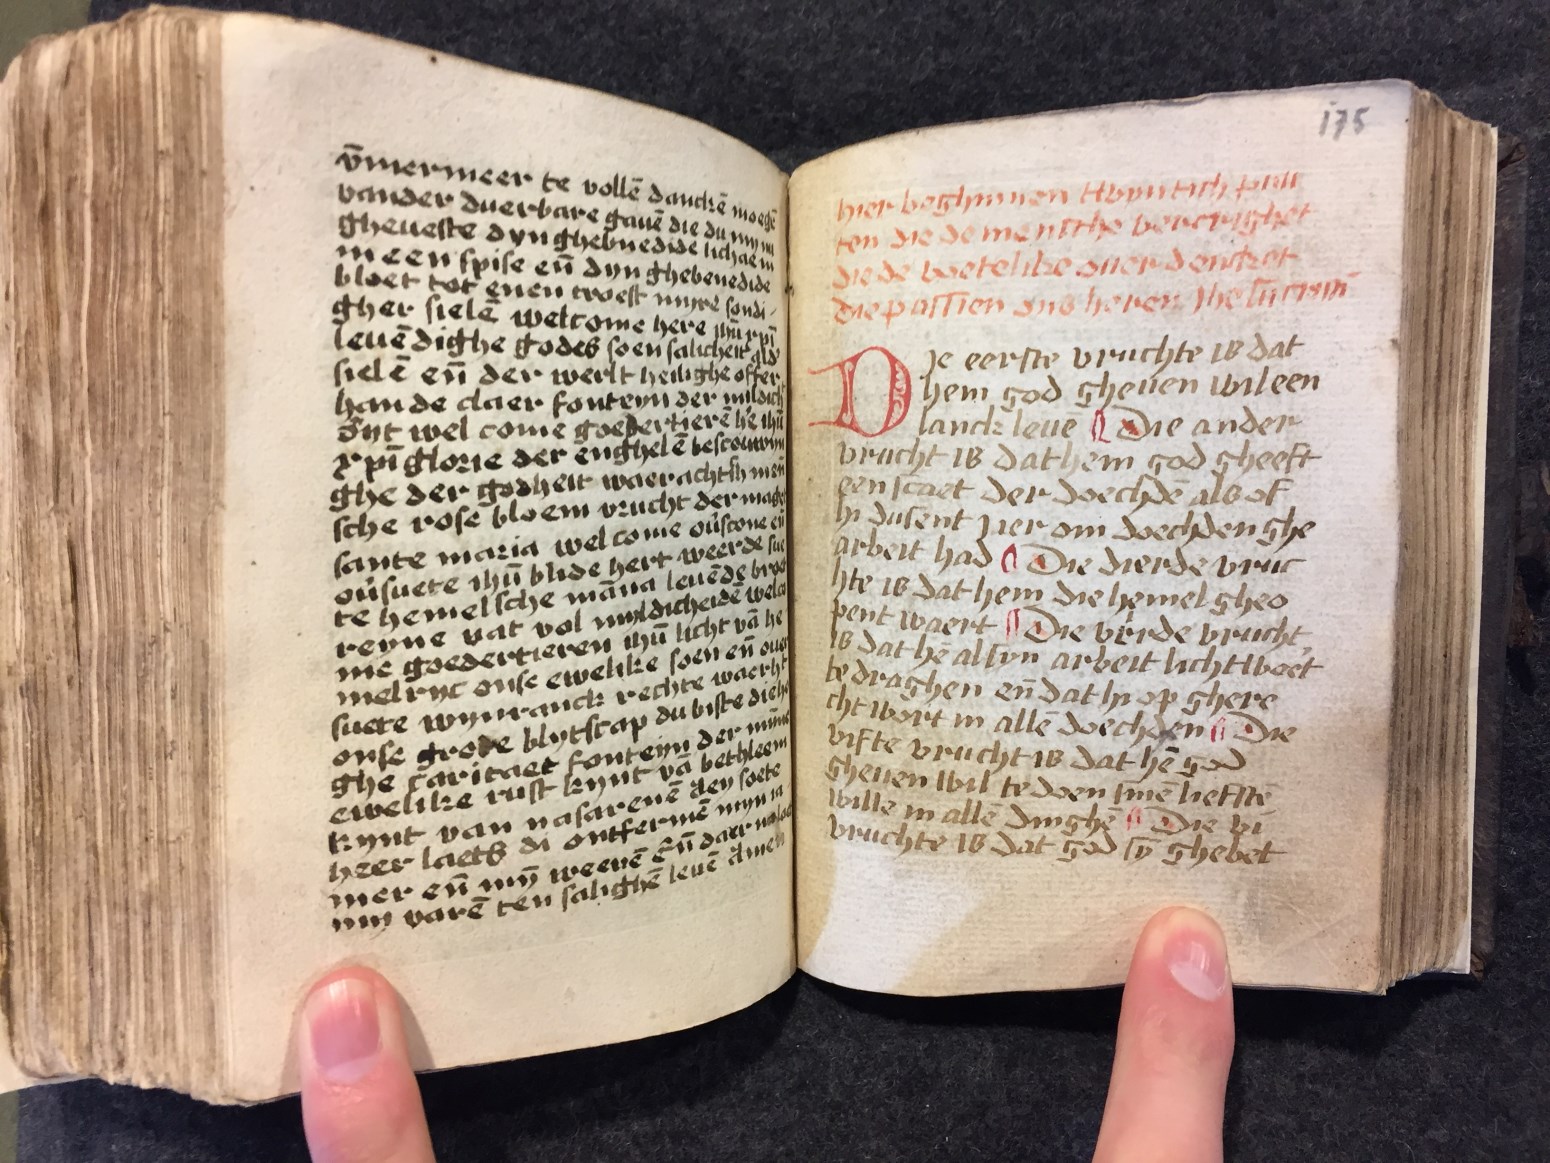 v̄mermeer te vollē danckē moegē
vander duerbare gauē die du my nu
gheueste dyn ghebnedide lichaem
meen spise eñ dyn ghebenedide
bloet tot enen troest mynre sondi-
gher sielē welcome here ihū xpī
leuēdighe godes soen salicheit
sielē eñ der werlt heilighe offer
hande claer fonteyn der
wel come goedertierē ihū
xpī glorie der enghelē
ghe der godheit waerachtich men
sche rose bloem vrucht der
sante maria wel come oūscone eñ
oūsuete ihū blide hert weerde sue
te hemelsche māna leuēde broet
reyne vat vol myldicheidē welco
me goedertieren ihū licht vā he
melryc onse ewelike soen eñ
suete wynranck rechte
onse grode blytscap du biste die
ghe caritaet fonteyn der
ewelike rust kynt vā bethleem
kynt van nasarenē den soete
heer laets di ontfermē myn
mer eñ myn weenē eñ daer
myn varē ten salighē leuē Amen
175
hier beghinnen twyntich
ten die de mensche vercrighet
die de voetelike ouer dencket
die passien ons heren
Die eerste vruchte is dat
hem god gheuen wil een
lanck leuē ¶ Die ander
vrucht is dat hem god gheeft
een scaet der doechdē als of
hi dusent iaer om doechden ghe
arbeit had ¶ Die dierde vruc
hte is dat hem die hemel gheo
pent waert ¶ Die vērde vrucht
is dat hē al syn arbeit licht woet
te draghen eñ dat hi op ghere
cht wort in allē doechden ¶ Die
vifte vrucht is dat hē god
gheuen wil te doen sinē liefstē
wille in allē dinghē ¶ Die vi
vruchte is dat god sȳ ghebet